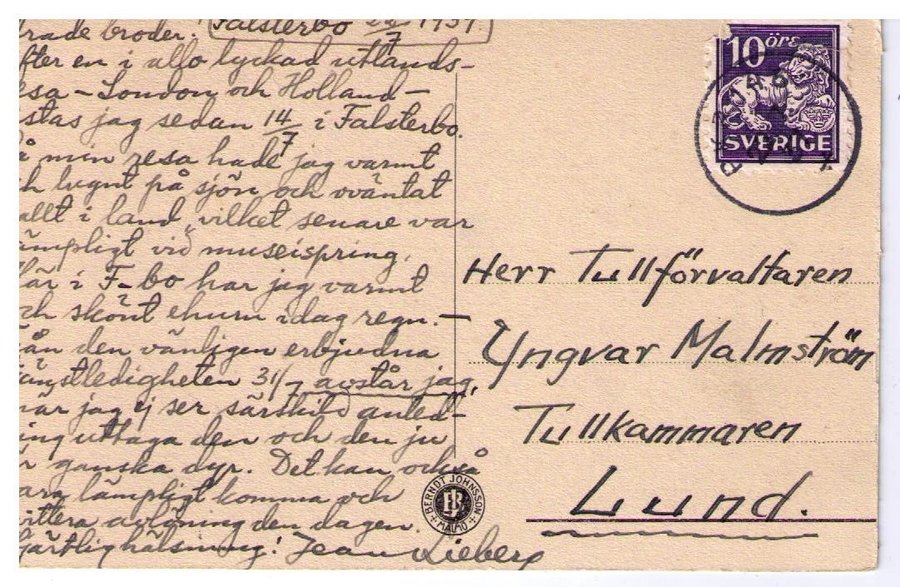 rade broder! Falsterbo 22/7 1939.
fter en i allo lyckad utlands-
esa – London och Holland –
stas jag sedan 14/7 i Falsterbo.
å min resa hade jag varmt
h lugnt på sjön och oväntat
allt i land, vilket senare var
ämpligt vid museispring.
är i F-bo har jag varmt
ch skönt ehuru idag regn. –
ån den vänligen erbjudna
jänstledigheten 31/7 avstår jag,
när jag ej ser särskild anled-
ing uttaga den och den ju
r ganska dyr. Det kan också
ara lämpligt komma och
vittera avlöning den dagen.
järtlig hälsning! Jean Lieberg
10 ÖRE
SVERIGE
Herr Tullförvaltaren
Yngvar Malmström
Tullkammaren
Lund.
BERNDT JOHNSSON
MALMÖ